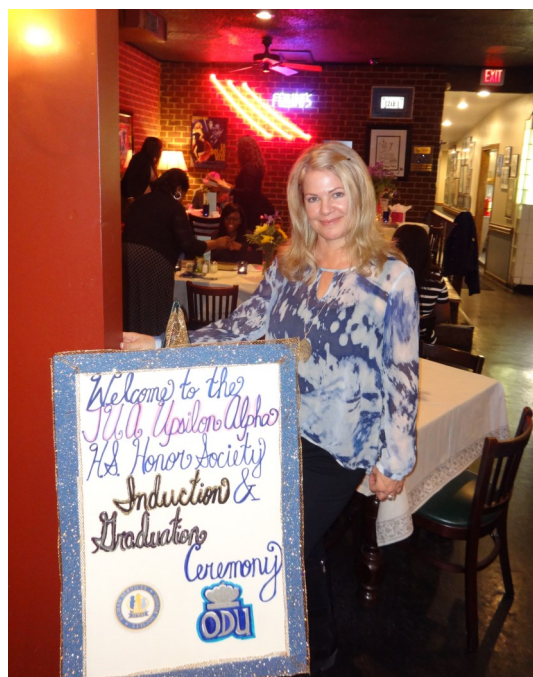 EXIT
Welcome to the
TUA Upsilon Alpha
HS Honor Society
Induction &
Graduation
Ceremony
ODU